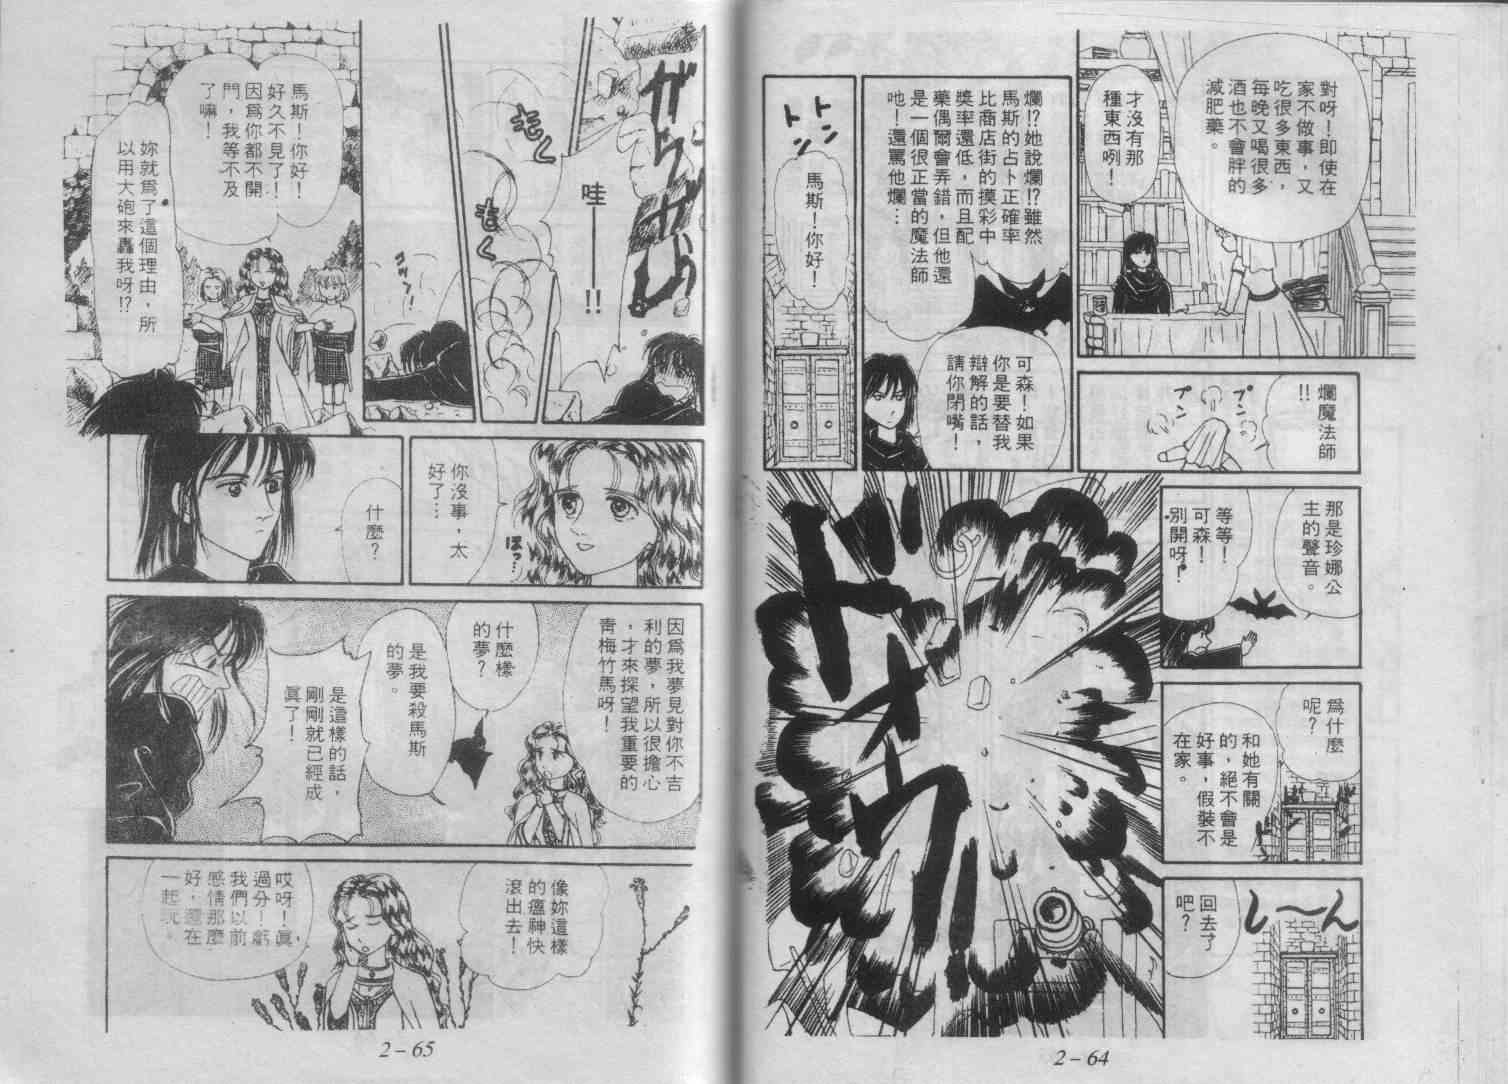 對呀！即使在
家不做事，又
吃很多東西，
每晚又喝很多
酒也不會胖的
減肥藥。
才沒有那
種東西咧！
爛魔法師
!!
プンプン
爛!?她說爛!?雖然
馬斯的占卜正確率
比商店街的摸彩中
獎率還低，而且配
藥偶爾會弄錯，但他還
是一個很正當的魔法師
吔！還罵他爛…
可森！如果
你是要替我
辯解的話，
請你閉嘴！
トントン
馬斯！你好！
那是珍娜公
主的聲音。
等等！
可森！
別開呀！
為什麼
呢？
和她有關
的，絕不會是
好事，假裝不
在家。
し〜ん
回去了
吧？
ドオウ
2－64
ガラガラ
哇——!!
もくもく
コツン!
馬斯！你好！
好久不見了！
因為你都不開
門，我等不及
了嘛！
妳就為了這個理由，所
以用大砲來轟我呀!?
你沒事，太
好了…
ほっ…
什麼？
因為我夢見對你不吉
利的夢，所以很擔心
，才來探望我重要的
青梅竹馬呀！
什麼樣
的夢？
是我要殺馬斯
的夢。
是這樣的話，
剛剛就已經成
真了！
像妳這樣
的瘟神快
滾出去！
哎呀！真
過分！虧
我們以前
感情那麼
好，還在
一起玩。
2－65